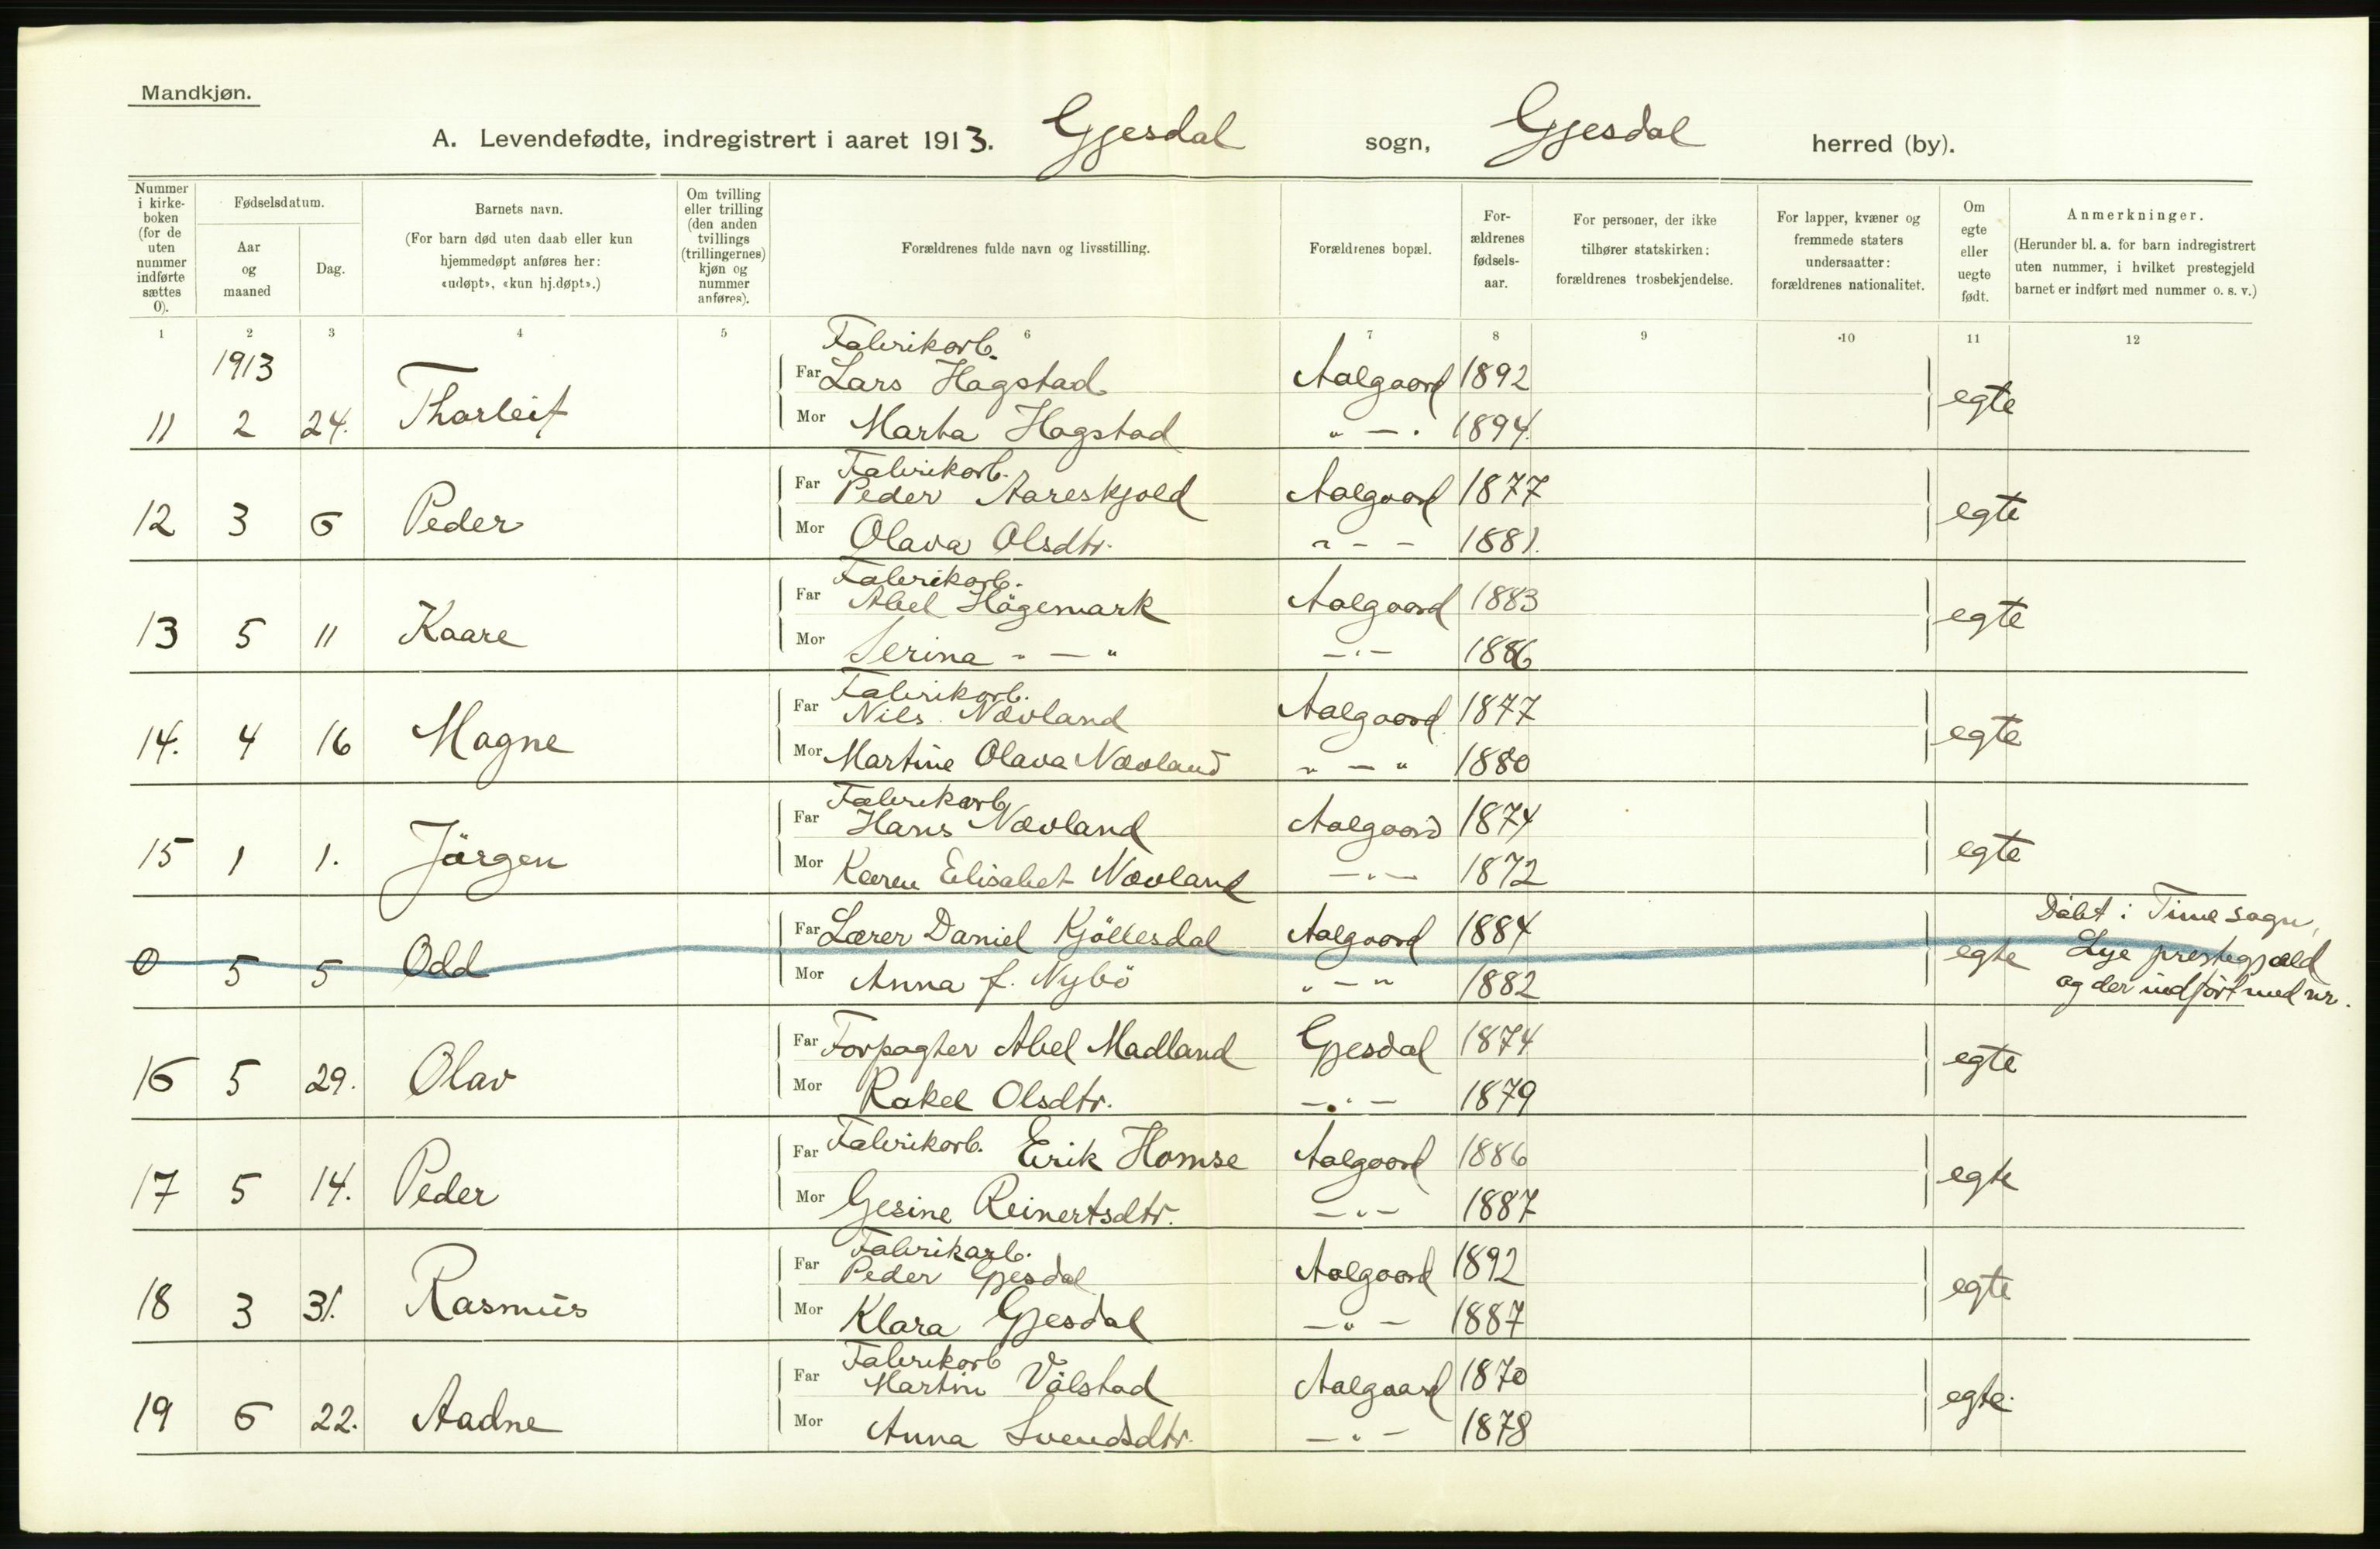 Mandkjøn.
A. Levendefødte, indregistrert i aaret 1913. Gjesdal sogn, Gjesdal herred (by).
Nummer i kirke- boken (for de uten nummer indførte sættes 0).
Fødselsdatum.
Aar og maaned
Dag.
Barnets navn.
(For barn død uten daab eller kun hjemmedøpt anføres her: «udøpt», «kun hj.døpt».)
Om tvilling eller trilling (den anden tvillings (trillingernes) kjøn og nummer anføres).
Forældrenes fulde navn og livsstilling.
Forældrenes bopæl.
For- ældrenes fødsels- aar.
For personer, der ikke tilhører statskirken: forældrenes trosbekjendelse.
For lapper, kvæner og fremmede staters undersaatter: forældrenes nationalitet.
Om egte eller uegte født.
Anmerkninger.
(Herunder bl. a. for barn indregistrert uten nummer, i hvilket prestegjeld barnet er indført med nummer o. s. v.)
1 2 3 4 5 6 7 8 9 10 11 12
1913
Fabrikarb.
Far Lars Hagstad Aalgaard 1892
11 2 24. Thorleif egte
Mor Marta Hagstad " — . 1894.
Fabrikarb.
Far Peder Aareskjold Aalgaard 1877
12 3 6 Peder egte
Mor Olava Olsdtr. " - - 1881.
Fabrikarb.
Far Abel Högemark Aalgaard 1883
13 5 11 Kaare egte
Mor Serina " — " — " — 1886
Fabrikarb.
Far Niels Novland Aalgaard 1877
14. 4 16 Magne egte
Mor Martine Olava Novland " — " 1880
Fabrikarb
Far Hans Novland Aalgaard 1874
15 1 1. Jörgen egte
Mor Karen Elisabet Novland — " — 1872
Far Lærer Daniel Kjöllesdal Aalgaard 1884
0 5 5 Odd egte
Mor Anna f. Nybö " — " 1882
Döbt i Time sogn,
Lye prestegjæld
og der indfört med nr.
Far Forpagter Abel Madland Gjesdal 1874
16 5 29. Olav egte
Mor Rakel Olsdtr. — " — 1879
Far Fabrikarb. Erik Homse Aalgaard 1886
17 5 14. Peder egte
Mor Gesine Reinertsdtr. — " — 1887
Fabrikarb.
Far Peder Gjesdal Aalgaard 1892
18 3 31. Rasmus egte
Mor Klara Gjesdal — " — 1887
Fabrikarb
Far Martin Vålstad Aalgaard 1870
19 6 22. Aadne egte.
Mor Anna Svendsdtr. — " — 1878